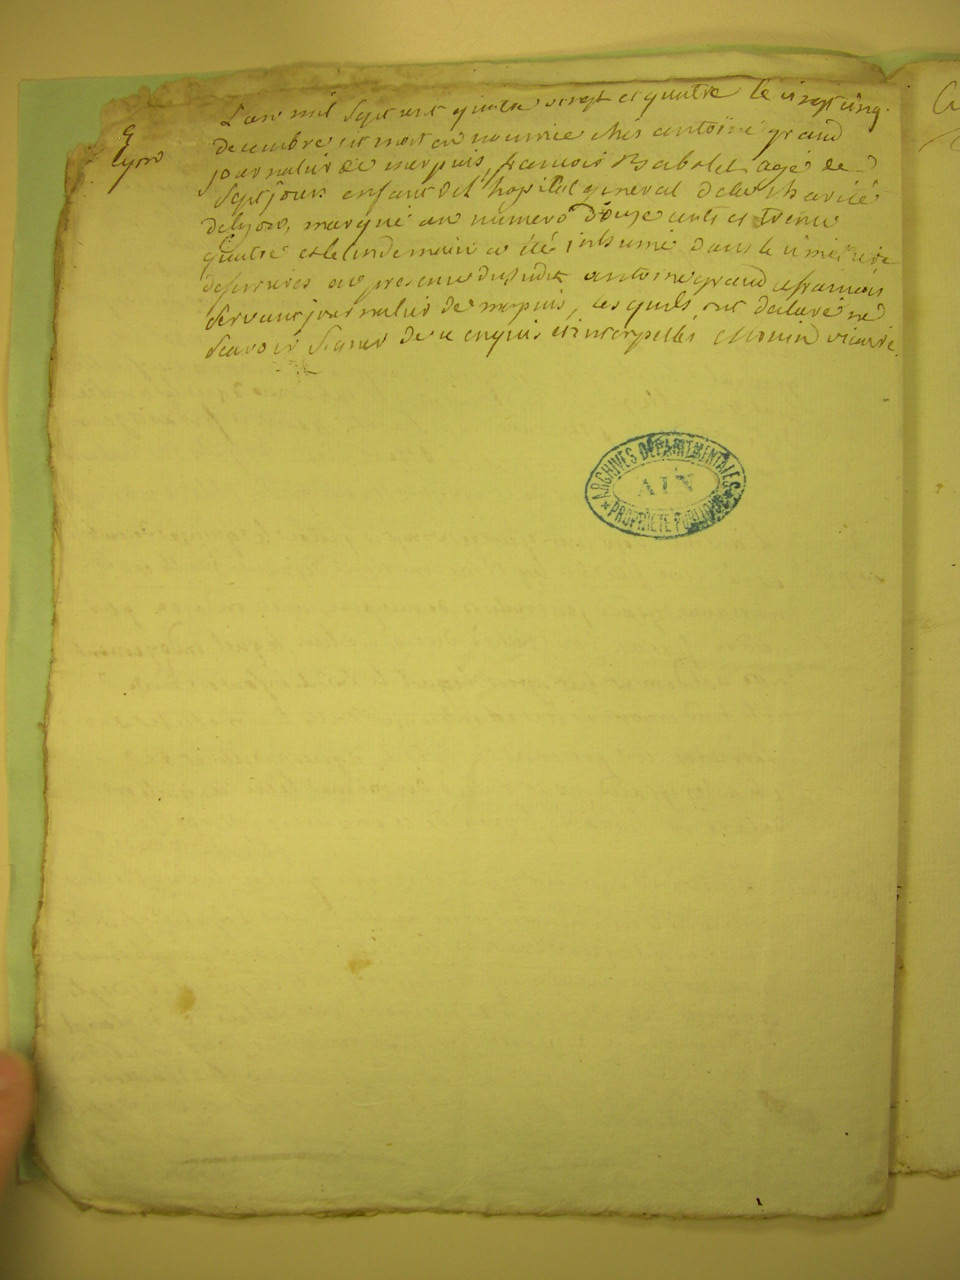 E
Lyon
L'an mil sept cent quatre vingt et quatre le vingt cinq
decembre est mort en nourrice chés antoine grand
journalier de merpuis, francois Babolet agé de
sept jours enfant de l'hopital general de la charité
de lyon, marqué au numero douze cents et trente
quatre et le lendemain a été inhumé dans le cimetiere
de en presence du susdit antoine grand et francois
servant journalier de merpuis, lesquels ont declaré ne
scavoir signer de ce enquis et interpellés vicaire
ARCHIVES DÉPARTEMENTALES
AIN
* PROPRIÉTÉ PUBLIQUE *